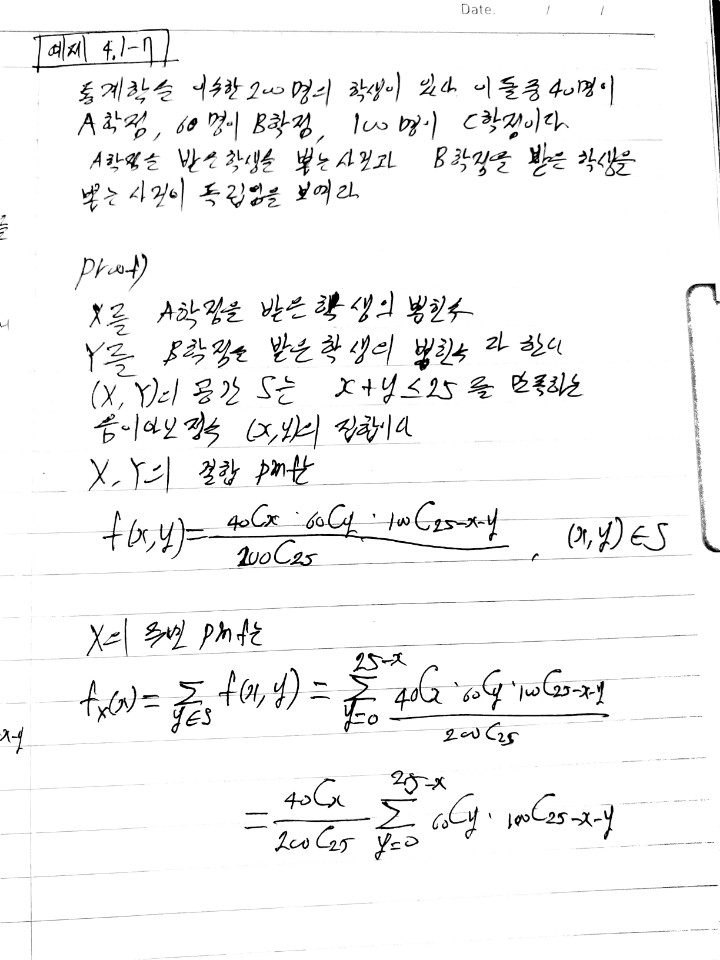 Date. / /
예제 4.1-7
통계학을 이수한 200명의 학생이 있다 이들중 40명이
A학점, 60명이 B학점, 100명이 C학점이다.
A학점을 받은 학생을 뽑는 사건과 B학점을 받은 학생을
뽑는 사건이 독립임을 보여라
proof)
X를 A학점을 받은 학생의 뽑힌수
Y를 B학점을 받은 학생의 뽑힌수 라 한다
(X, Y)의 공간 S는 x+y≤25 를 만족하는
음이아닌 정수 (x,y)의 집합이다
X, Y의 결합 pmf는
f(x,y) = 40Cx · 60Cy · 100C25-x-y / 200C25 , (x,y) ∈ S
X의 주변 pmf는
fx(x) = Σ y∈S f(x,y) = Σ y=0 25-x 40Cx · 60Cy · 100C25-x-y / 200C25
= 40Cx / 200C25 Σ y=0 25-x 60Cy · 100C25-x-y
x-y